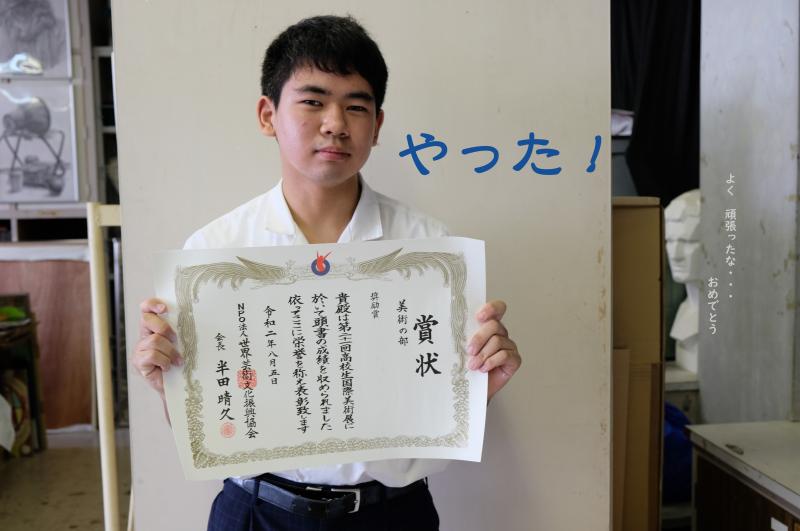 やった！
よく 頑張ったな・・・
おめでとう
賞状
美術の部
奨励賞
貴殿は第二十一回高校生国際美術展に
於いて頭書の成績を収められました
依ってここに栄誉を称え表彰致します
令和二年八月五日
NPO法人世界芸術文化振興協会
会長 半田晴久